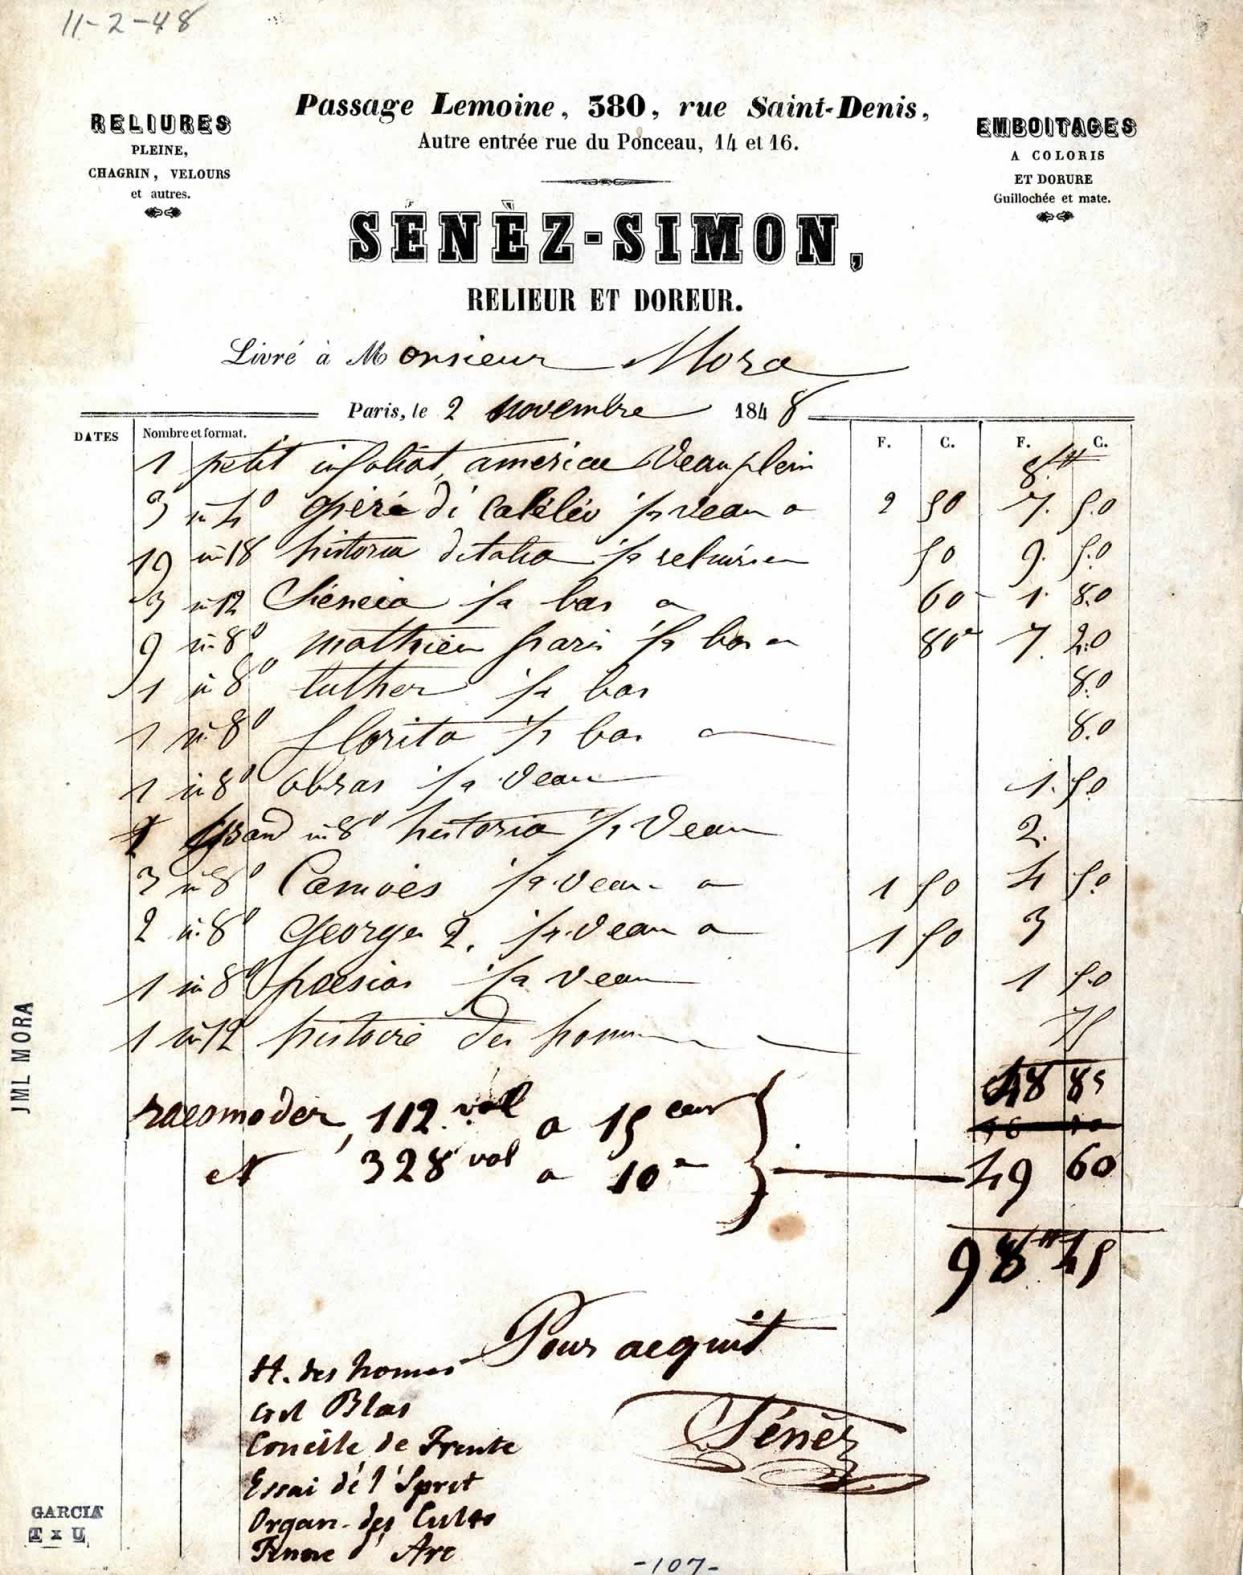 11-2-48
Passage Lemoine, 380, rue Saint-Denis,
Autre entrée rue du Ponceau, 14 et 16.
RELIURES
PLEINE,
CHAGRIN, VELOURS
et autres.
EMBOITAGES
A COLORIS
ET DORURE
Guillochée et mate.
SÉNÈZ-SIMON,
RELIEUR ET DOREUR.
Livré à Monsieur Mora
Paris, le 2 novembre 1848
DATES Nombre et format. F. C. F. C.
1 petit infoliat, americae Veau plein 8#
3 in 4º opéré di Calileo 1/2 veau a 2 50 7. 50
19 in 18 historia ditalia 1/2 reliure a 50 9. 50
3 in 12 1/2 bas a 60 1. 80
9 in 8º mathieu paris 1/2 bas a 80 7. 20
1 in 8º luther 1/2 bas 80
1 in 8º florita 1/2 bas 80
1 in 8º obras 1/2 Veau 1. 50
1 grand in 8º historia 1/2 Veau 2.
3 in 8º Camoës 1/2 veau a 1 50 4 50
2 in 8º George 2. 1/2 veau a 1 50 3
1 in 8º poesias 1/2 veau 1 50
1 in 12 histoire des hommes 75
48 85
racomoder, 112 vol a 15 cen
et 328 vol a 10 49 60
98# 45
Pour acquit
Sénèz
H. des homes
Gil Blas
Concile de Trente
Essai de l'Sprit
Organ. des Cultes
d'Arc
JML MORA
GARCIA
T x U
-107-